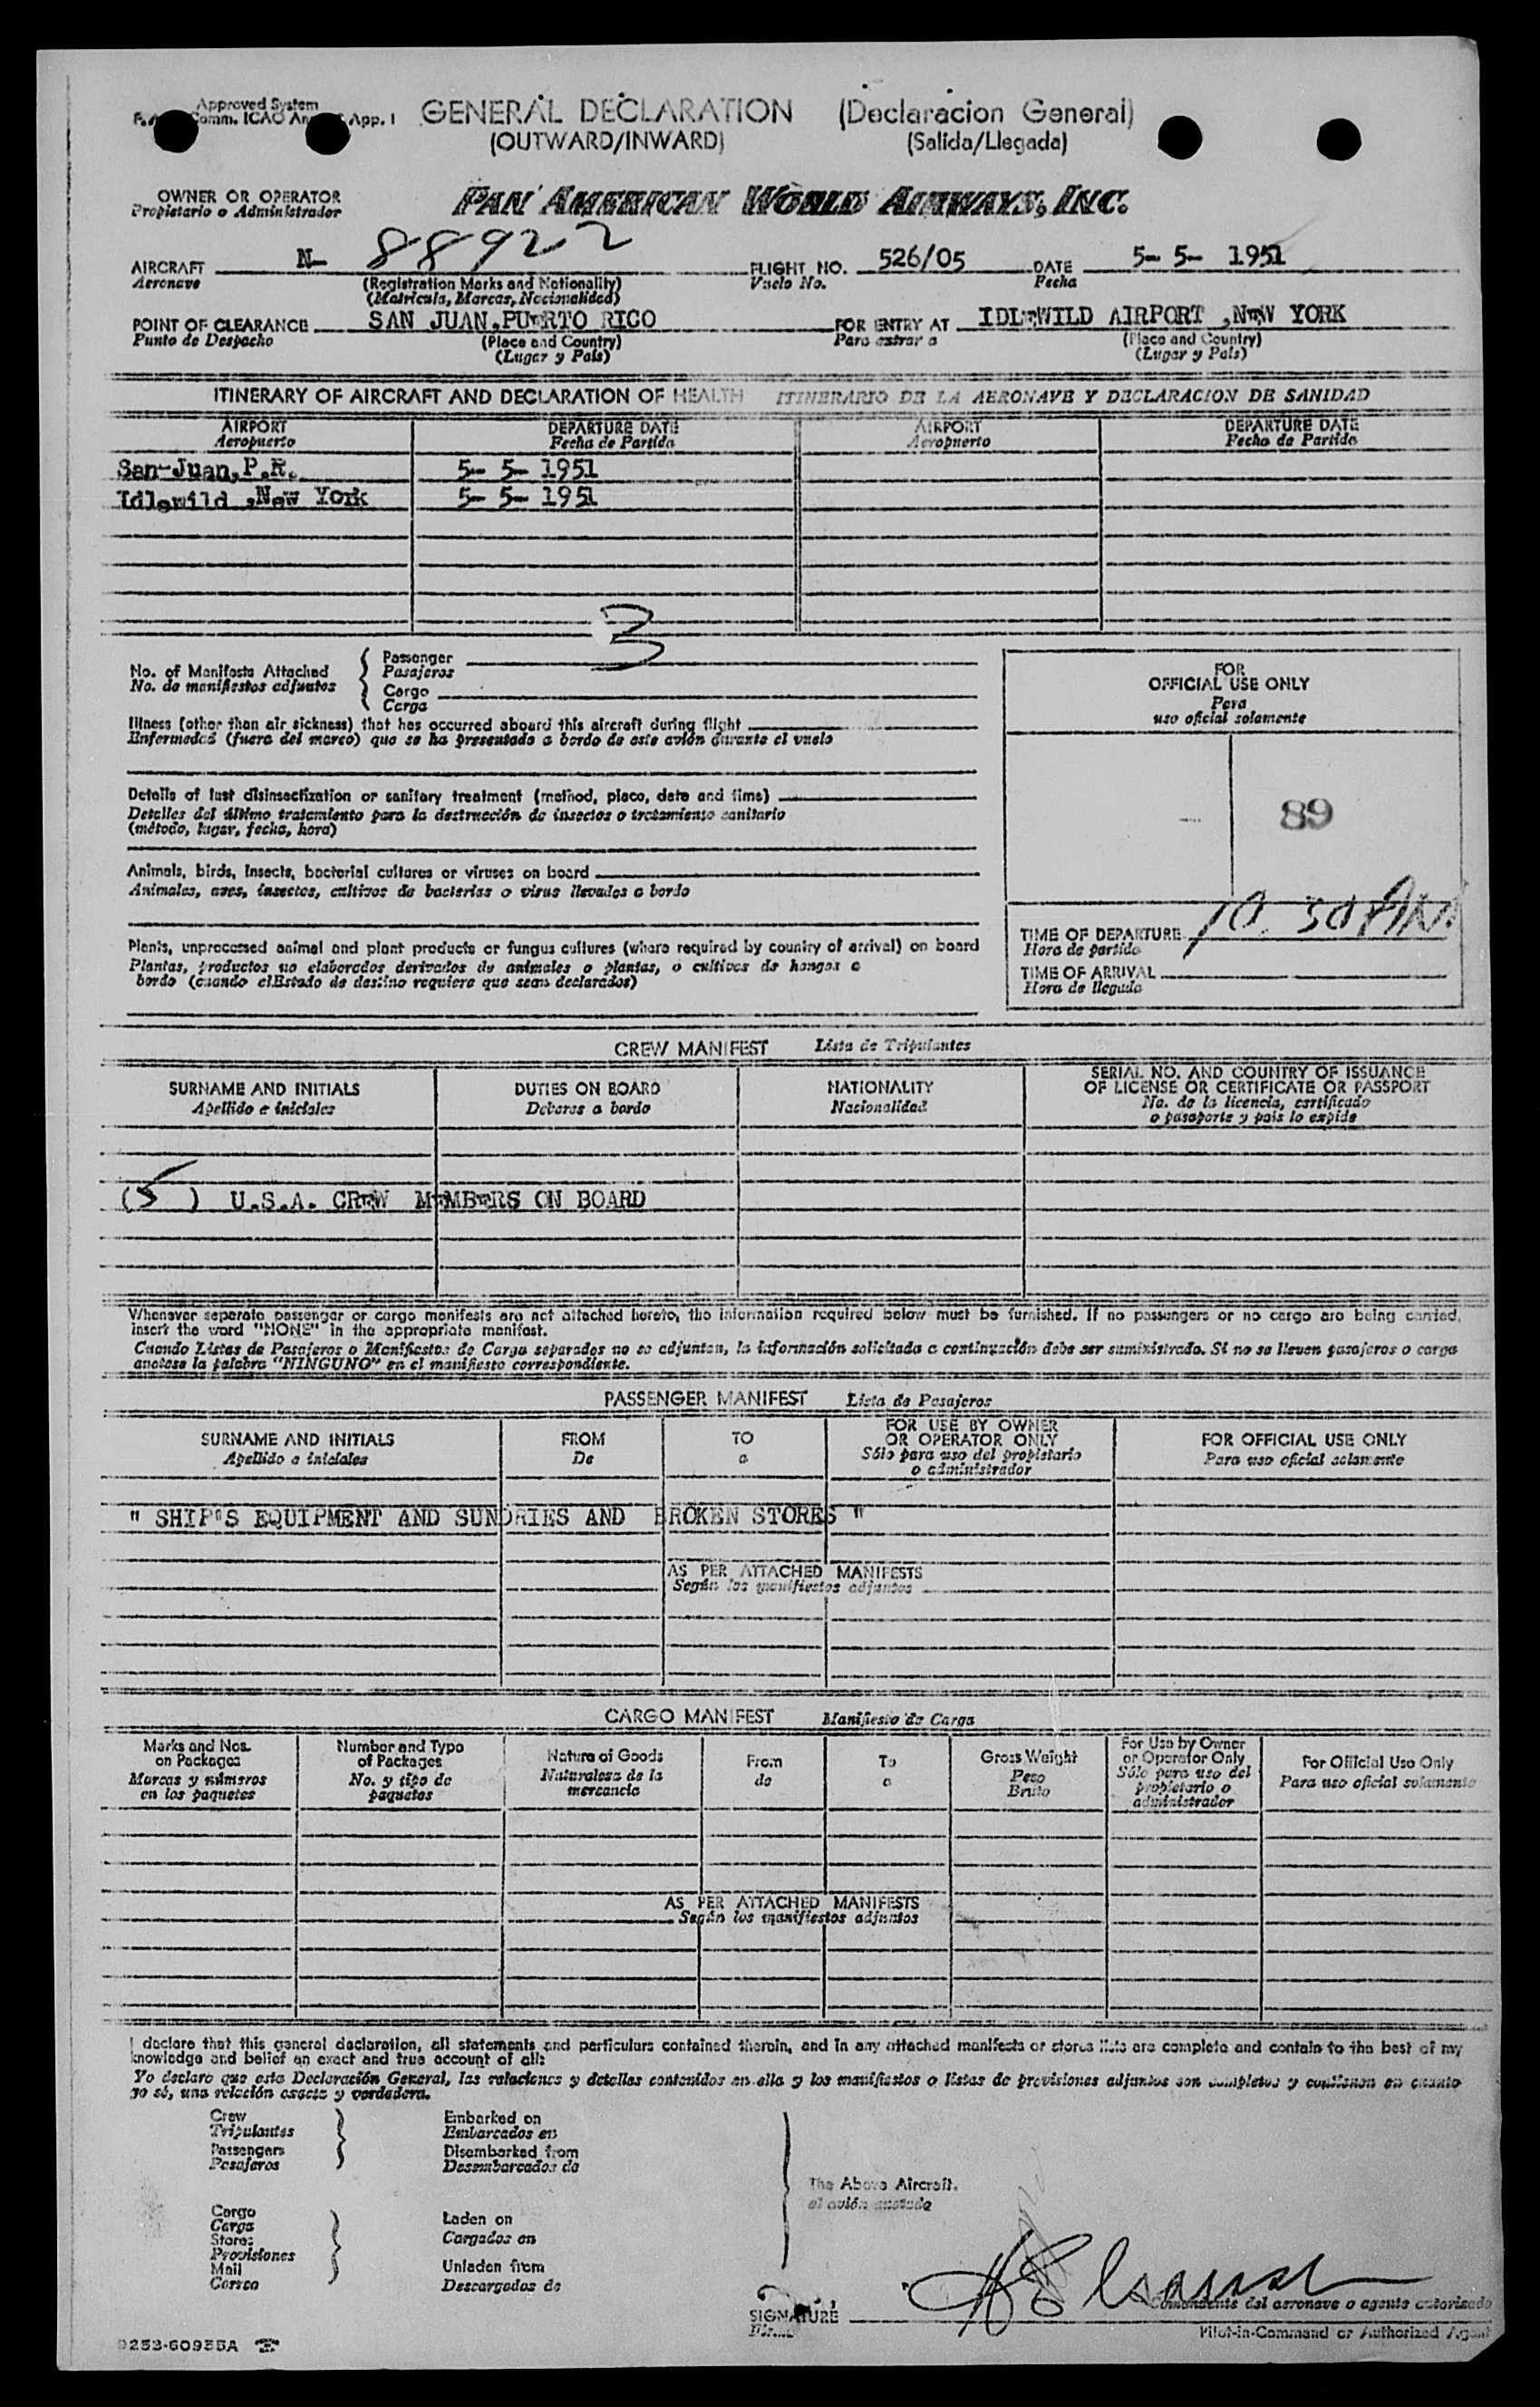 Approved System
Comm. ICAO App. I
GENERAL DECLARATION (Declaracion General)
(OUTWARD/INWARD) (Salida/Llegada)
OWNER OR OPERATOR
Propietario o Administrador
PAN AMERICAN WORLD AIRWAYS, INC.
AIRCRAFT N- 88922 FLIGHT NO. 526/05 DATE 5- 5- 1951
Aeronave (Registration Marks and Nationality) Vuelo No. Fecha
(Matricula, Marcas, Nacionalidad)
POINT OF CLEARANCE SAN JUAN, PUERTO RICO FOR ENTRY AT IDLEWILD AIRPORT , NEW YORK
Punto de Despacho (Place and Country) Para entrar a (Place and Country)
(Lugar y País) (Lugar y País)
ITINERARY OF AIRCRAFT AND DECLARATION OF HEALTH ITINERARIO DE LA AERONAVE Y DECLARACION DE SANIDAD
AIRPORT DEPARTURE DATE AIRPORT DEPARTURE DATE
Aeropuerto Fecha de Partida Aeropuerto Fecha de Partida
San-Juan, P.R. 5- 5- 1951
Idlewild ,New York 5- 5- 1951
3
No. of Manifests Attached Passenger
No. de manifiestos adjuntos Pasajeros
Cargo
Carga
Illness (other than air sickness) that has occurred aboard this aircraft during flight
Enfermedad (fuera del mareo) que se ha presentado a bordo de este avión durante el vuelo
Details of last disinsectization or sanitary treatment (method, place, date and time)
Detalles del último tratamiento para la destrucción de insectos o tratamiento sanitario
(método, lugar, fecha, hora)
Animals, birds, insects, bacterial cultures or viruses on board
Animales, aves, insectos, cultivos de bacterias o virus llevados a bordo
Plants, unprocessed animal and plant products or fungus cultures (where required by country of arrival) on board
Plantas, productos no elaborados derivados de animales o plantas, o cultivos de hongos a
bordo (cuando el Estado de destino requiera que sean declarados)
FOR
OFFICIAL USE ONLY
Para
uso oficial solamente
89
TIME OF DEPARTURE 10 50 AM
Hora de partida
TIME OF ARRIVAL
Hora de llegada
CREW MANIFEST Lista de Tripulantes
SURNAME AND INITIALS DUTIES ON BOARD NATIONALITY SERIAL NO. AND COUNTRY OF ISSUANCE
OF LICENSE OR CERTIFICATE OR PASSPORT
Apellido e iniciales Deberes a bordo Nacionalidad No. de la licencia, certificado
o pasaporte y país lo expide
(5) U.S.A. CREW MEMBERS ON BOARD
Whenever separate passenger or cargo manifests are not attached hereto, the information required below must be furnished. If no passengers or no cargo are being carried,
insert the word "NONE" in the appropriate manifest.
Cuando Listas de Pasajeros o Manifiestos de Carga separados no se adjuntan, la información solicitada a continuación debe ser suministrada. Si no se lleven pasajeros o carga
anotese la palabra "NINGUNO" en el manifiesto correspondiente.
PASSENGER MANIFEST Lista de Pasajeros
SURNAME AND INITIALS FROM TO FOR USE BY OWNER
OR OPERATOR ONLY FOR OFFICIAL USE ONLY
Apellido e iniciales De a Sólo para uso del propietario
o administrador Para uso oficial solamente
" SHIP'S EQUIPMENT AND SUNDRIES AND BROKEN STORES "
AS PER ATTACHED MANIFESTS
Según los manifiestos adjuntos
CARGO MANIFEST Manifiesto de Carga
Marks and Nos.
on Packages
Marcas y números
en los paquetes
Number and Type
of Packages
No. y tipo de
paquetes
Nature of Goods
Naturaleza de la
mercancía
From
de
To
a
Gross Weight
Peso
Bruto
For Use by Owner
or Operator Only
Sólo para uso del
propietario o
administrador
For Official Use Only
Para uso oficial solamente
AS PER ATTACHED MANIFESTS
Según los manifiestos adjuntos
I declare that this general declaration, all statements and particulars contained therein, and in any attached manifests or stores lists are complete and contain to the best of my
knowledge and belief an exact and true account of all:
Yo declaro que esta Declaración General, las relaciones y detalles contenidos en ella y los manifiestos o listas de provisiones adjuntos son completos y contienen en cuanto
yo sé, una relación exacta y verdadera.
Crew Embarked on
Tripulantes Embarcados en
Passengers Disembarked from
Pasajeros Desembarcados de
The Above Aircraft.
el avión anotado
Cargo Laden on
Carga Cargados en
Stores
Provisiones
Mail Unladen from
Correo Descargados de
SIGNATURE
Firma
Comandante del aeronave o agente autorizado
Pilot-in-Command or Authorized Agent
0252-60955A